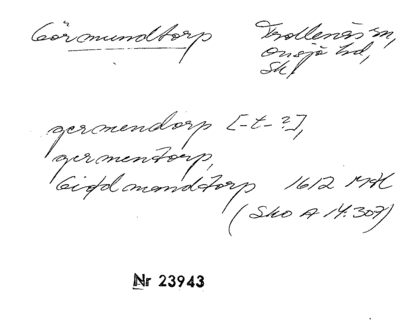 Görmundtorp Trollenäs sn,
Onsjö hd,
Sk
germendorp [-t-?],
germentorp,
1612 MH
(Sko A 14:307)
Nr 23943